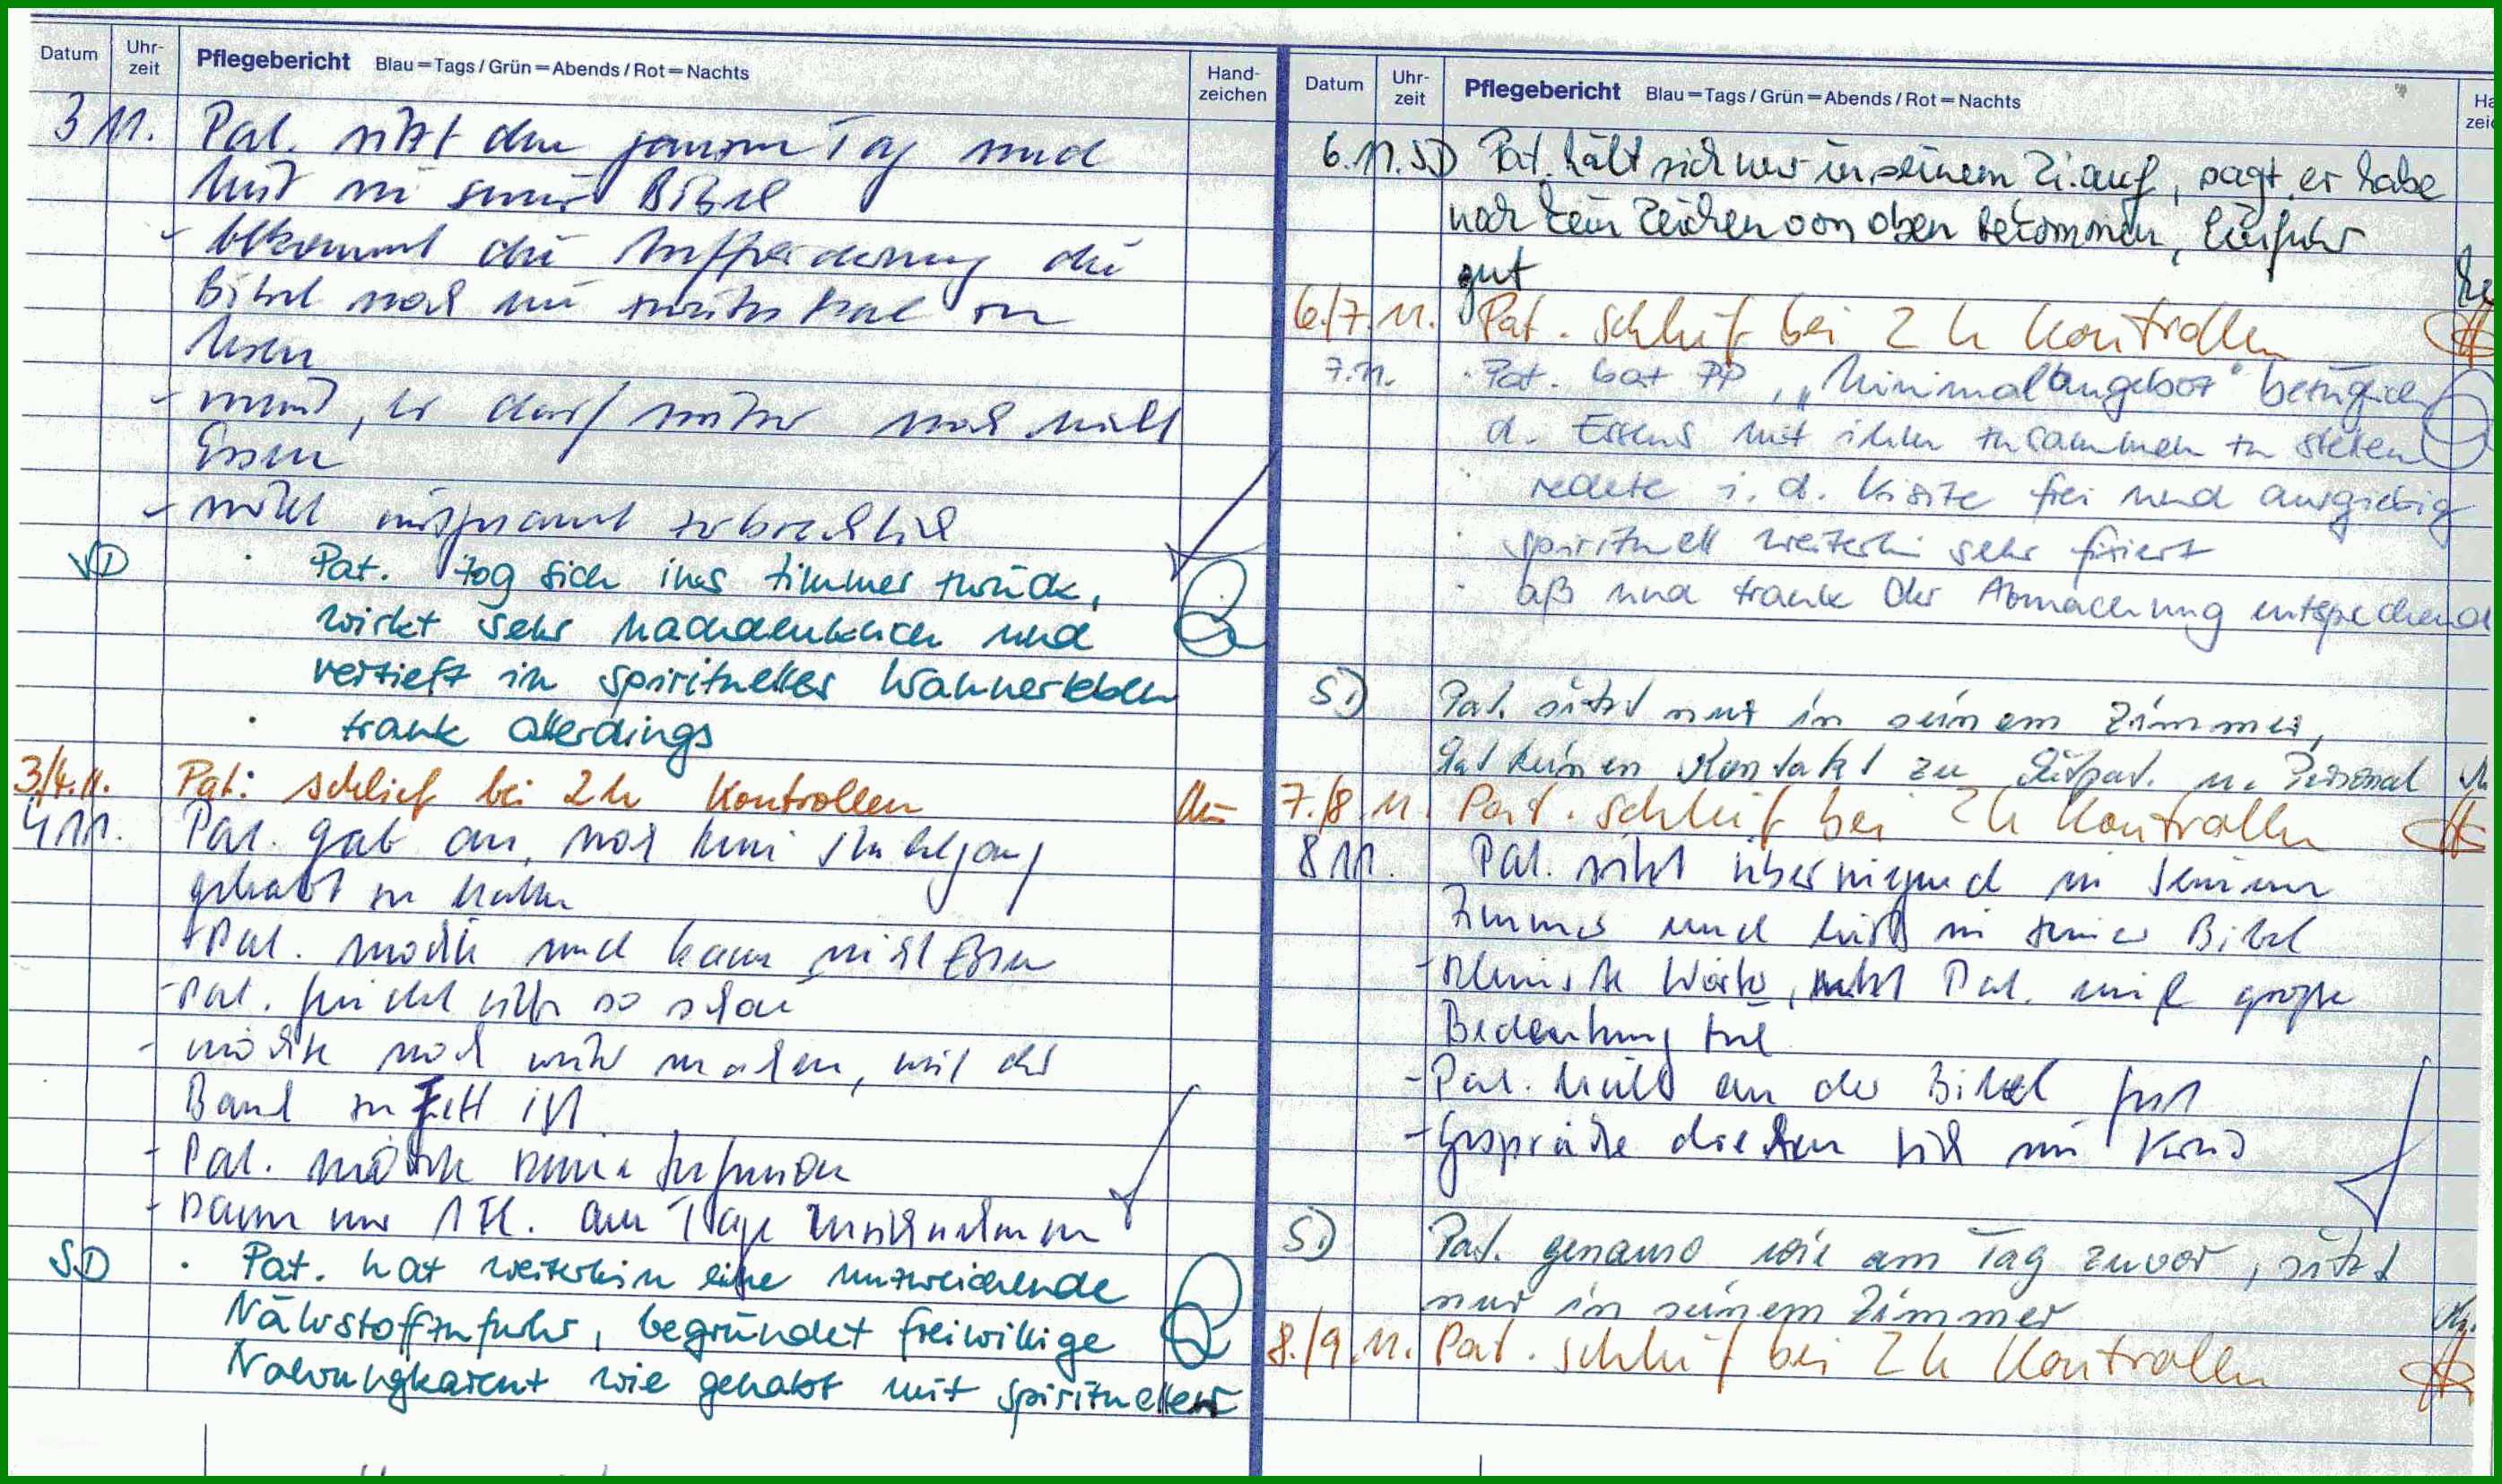 Datum Uhr-zeit Pflegebericht Blau=Tags/Grün=Abends/Rot=Nachts Hand-zeichen
3 11. Pat. sitzt den ganzen Tag und
liest in seiner Bibel
- bekommt die Aufforderung die
Bibel noch ein zweites Mal zu
lesen
- meint, er darf weiter noch nicht
Essen
- wirkt zerbrechlich
SD · Pat. zog sich ins Zimmer zurück,
wirkt sehr nachdenklich und
vertieft in spirituelles Wahnerleben
· trank allerdings
3/4.11. Pat: schlief bei 2h Kontrollen
4 11. Pat. gab an, noch kein Stuhlgang
gehabt zu haben
- Pat. möchte und kann nicht Essen
- Pat. findet sich so schön
- möchte noch mehr machen, weil der
Bauch zu Fett ist
- Pat. möchte keine Infusion
- Kann nur 1 Fl. am Tage zusichnehmen
SD · Pat. hat weiterhin eine unzureichende
Nährstoffzufuhr, begründet freiwillige
Nahrungkarent wie gehabt mit spirituellen
Datum Uhr-zeit Pflegebericht Blau=Tags/Grün=Abends/Rot=Nachts Ha zei
6.11. SD Pat. hält sich nur in seinem Zi. auf, sagt er habe
noch kein Zeichen von oben bekommen, Einfuhr
gut
6./7.11. Pat. schlief bei 2 h Kontrollen
7.11. · Pat. bat PP, „Minimalangebot" bezüglich
d. Essens mit ihm zusammen zu stellen
· redete i. d. Visite frei und ausgiebig
· spirituell weiterhin sehr fixiert
· aß und trank der Abmachung entsprechend
SD Pat. sitzt nur in seinem Zimmer,
hat keinen Kontakt zu Mitpat. u. Personal
7./8.11. Pat. schlief bei 2h Kontrollen
8 11. Pat. sitzt überwiegend in seinem
Zimmer und liest in seiner Bibel
- Kleinste Worte, mißt Pat. große
Bedeutung zu
- Pat. hält an der Bibel fest
- Gespräche drehen sich im Kreis
SD Pat. genauso wie am Tag zuvor, sitzt
nur in seinem Zimmer
8./9.11. Pat. schlief bei 2 h Kontrollen